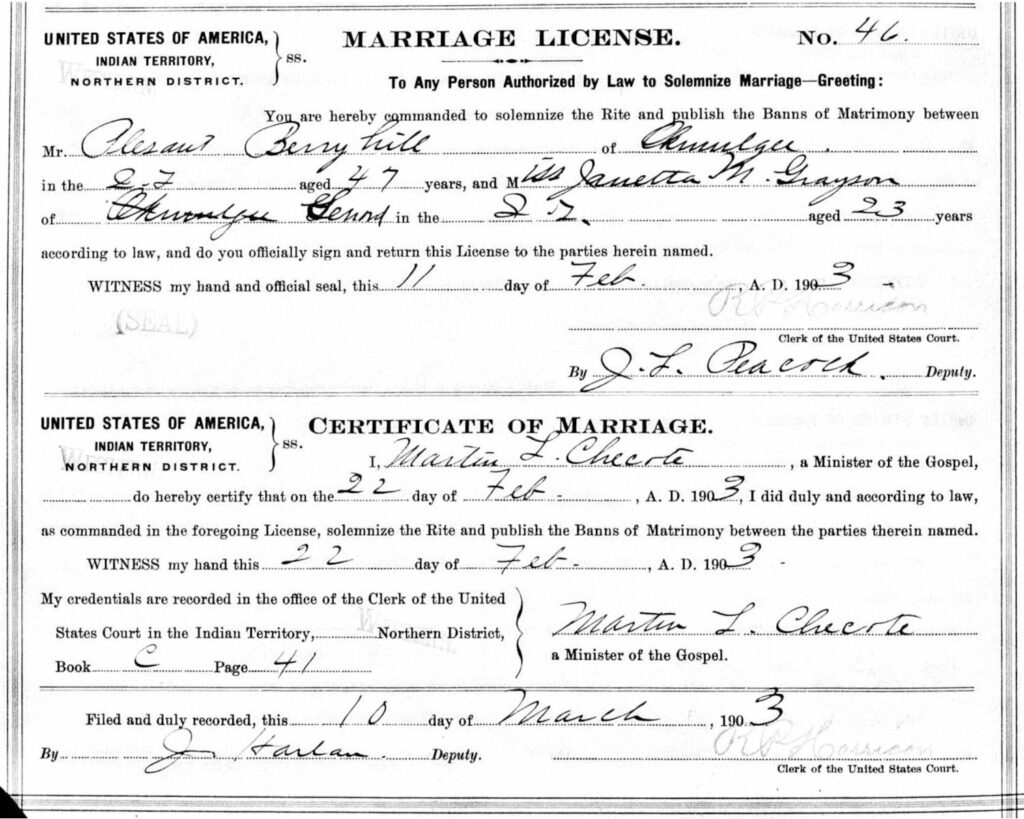 UNITED STATES OF AMERICA,
INDIAN TERRITORY,
NORTHERN DISTRICT.
ss.
MARRIAGE LICENSE.
No. 46.
To Any Person Authorized by Law to Solemnize Marriage—Greeting:
You are hereby commanded to solemnize the Rite and publish the Banns of Matrimony between
Mr. Plesant Berryhill of Okmulgee.
in the I.T. aged 47 years, and Miss Janetta M. Grayson
of Okmulgee in the I.T. aged 23 years
according to law, and do you officially sign and return this License to the parties herein named.
WITNESS my hand and official seal, this 11 day of Feb., A. D. 1903
(SEAL)
R P Harrison
Clerk of the United States Court.
By J. L. Peacock. Deputy.
UNITED STATES OF AMERICA,
INDIAN TERRITORY,
NORTHERN DISTRICT.
ss.
CERTIFICATE OF MARRIAGE.
I, Martin L. Checote, a Minister of the Gospel,
do hereby certify that on the 22 day of Feb-, A. D. 1903, I did duly and according to law,
as commanded in the foregoing License, solemnize the Rite and publish the Banns of Matrimony between the parties therein named.
WITNESS my hand this 22 day of Feb-, A. D. 1903-
My credentials are recorded in the office of the Clerk of the United
States Court in the Indian Territory, Northern District,
Book C Page 41
Martin L. Checote
a Minister of the Gospel.
Filed and duly recorded, this 10 day of March, 1903
By J Harlan. Deputy.
R P Harrison
Clerk of the United States Court.